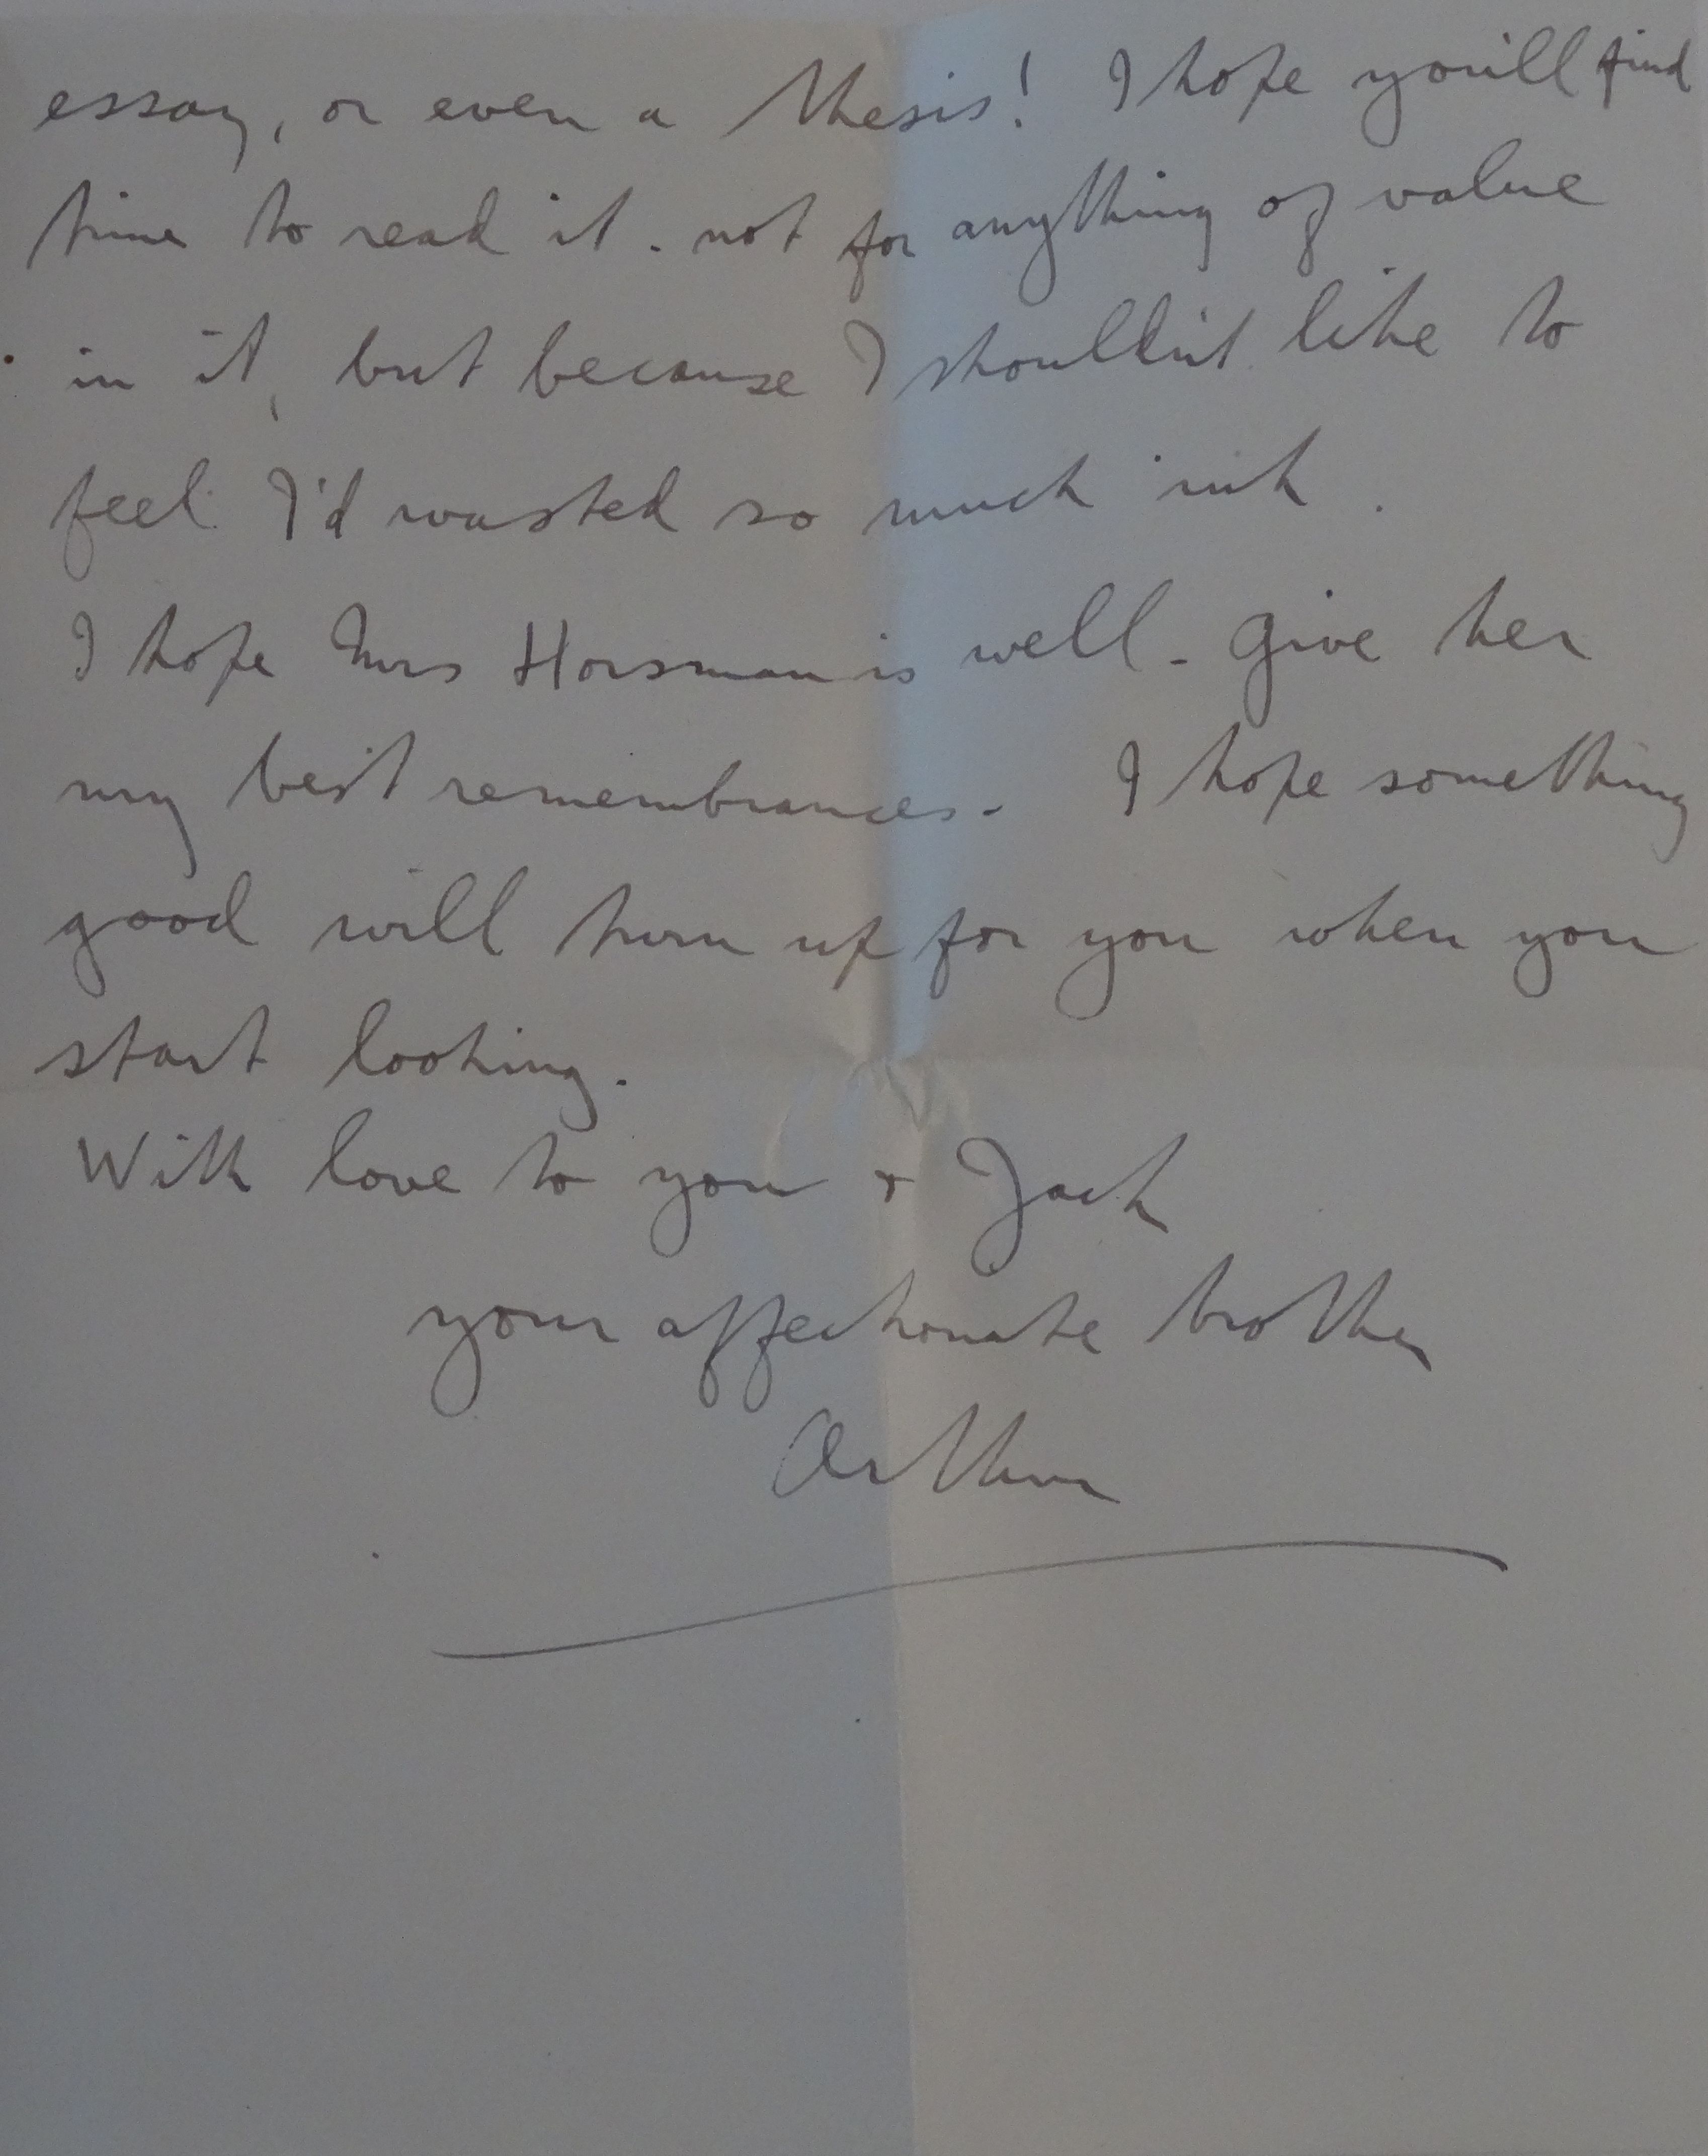 essay, or even a thesis! I hope you'll find
time to read it. not for anything of value
in it, but because I shouldn't like to
feel I'd wasted so much ink.
I hope Mrs Horsman is well - give her
my best remembrances. I hope something
good will turn up for you when you
start looking.
With love to you & Jack
your affectionate brother
Arthur